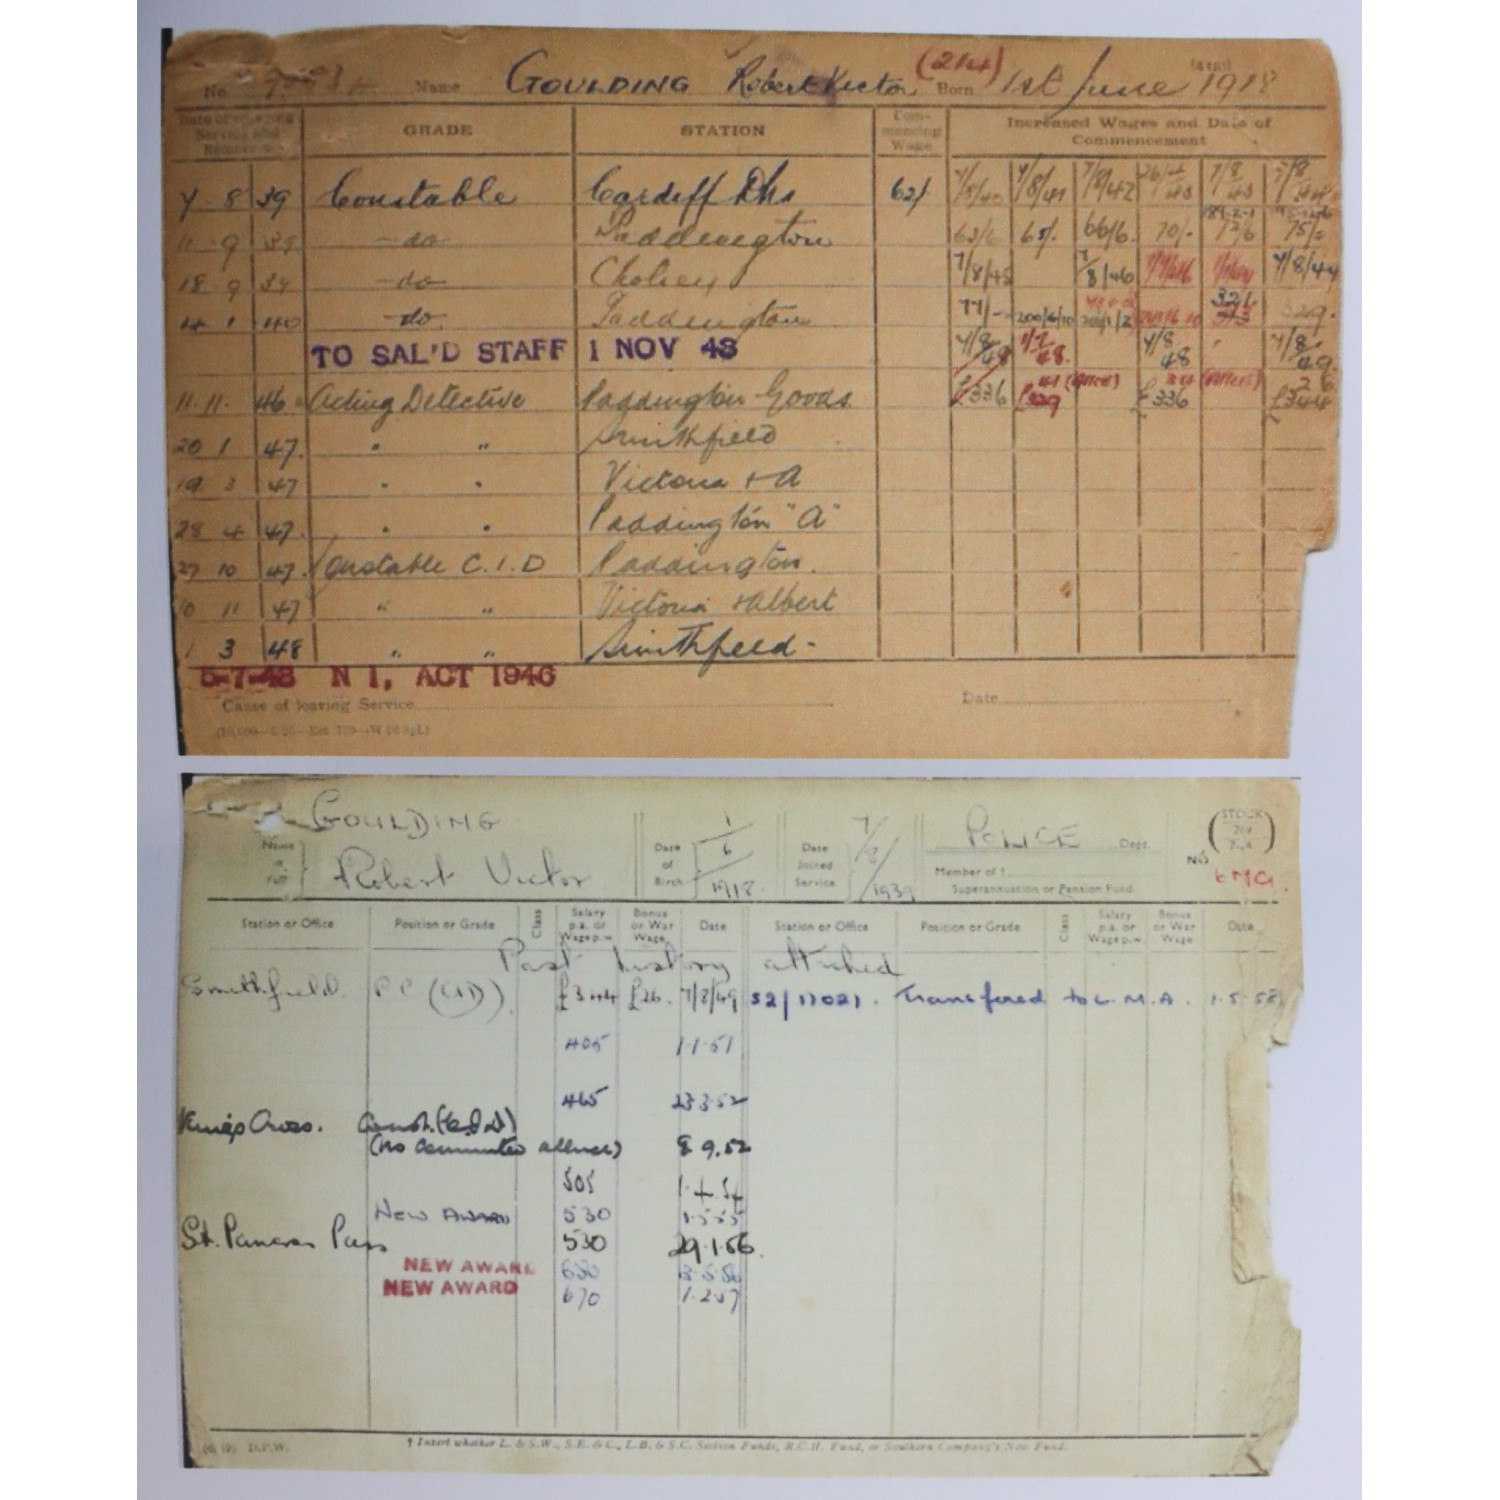 No. Name GOULDING Robert Victor (214) Born 1st June 1918
Date of entering Service and Removals GRADE STATION Commencing Wage Increased Wages and Date of Commencement
7 8 39 Constable Cardiff Dks 62/ 7/8/40 7/8/41 7/8/42 7/8/43
11 9 39 -do- Paddington 63/6 65/. 66/6. 70/- 72/6 75/=
18 9 39 -do- Cholsey 7/8/45 7/8/46 7/8/47
4 1 40 -do- Paddington 77/- 329.
TO SAL'D STAFF 1 NOV 48 7/8/48 1/7/48. 7/8/48 7/8/49.
11.11.46 Acting Detective Paddington Goods. £336 £329 £336 26 £344
20 1 47. " " Smithfield
19 3 47 " " Victoria + A
28 4 47. " " Paddington "A"
27 10 47. Constable C.I.D Paddington.
10 11 47 " " Victoria + Albert
1 3 48 " " Smithfield-
5-7-48 N I, ACT 1946
Cause of leaving Service Date
GOULDING
Name in full Robert Victor Date of Birth 1/6/1918. Date Joined Service 7/8/1939 POLICE Dept. No.
Member of † Superannuation or Pension Fund.
Station or Office Position or Grade Class Salary p.a. or Wage p.w. Bonus or War Wage Date Station or Office Position or Grade Class Salary p.a. or Wage p.w. Bonus or War Wage Date
Past history attached
Smithfield. PC (CID). £344 £26. 7/8/49 52/17021. Transfered to L.M.A. 1.5.58
405 1.1.51
465 23.3.52
Kings Cross. Const. (C.I.D)
(No commuted allnce) 8 9.52
505 1.4.54
NEW AWARD 530 1.5.55
St. Pancras Pass 530 29.1.56.
NEW AWARD 650
NEW AWARD 670 1.2.57
D.P.W. † Insert whether L. & S.W., S.E. & C., L.B. & S.C. Section Funds, R.C.H. Fund, or Southern Company's New Fund.